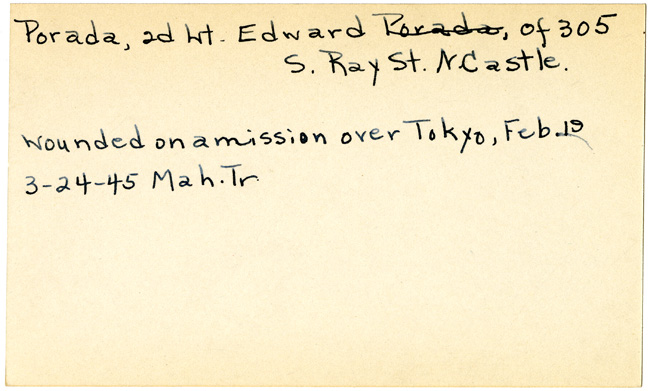 Porada, 2d Lt. Edward Porada, of 305
S. Ray St. N.Castle.
Wounded on a mission over Tokyo, Feb. 19
3-24-45 Mah. Tr.